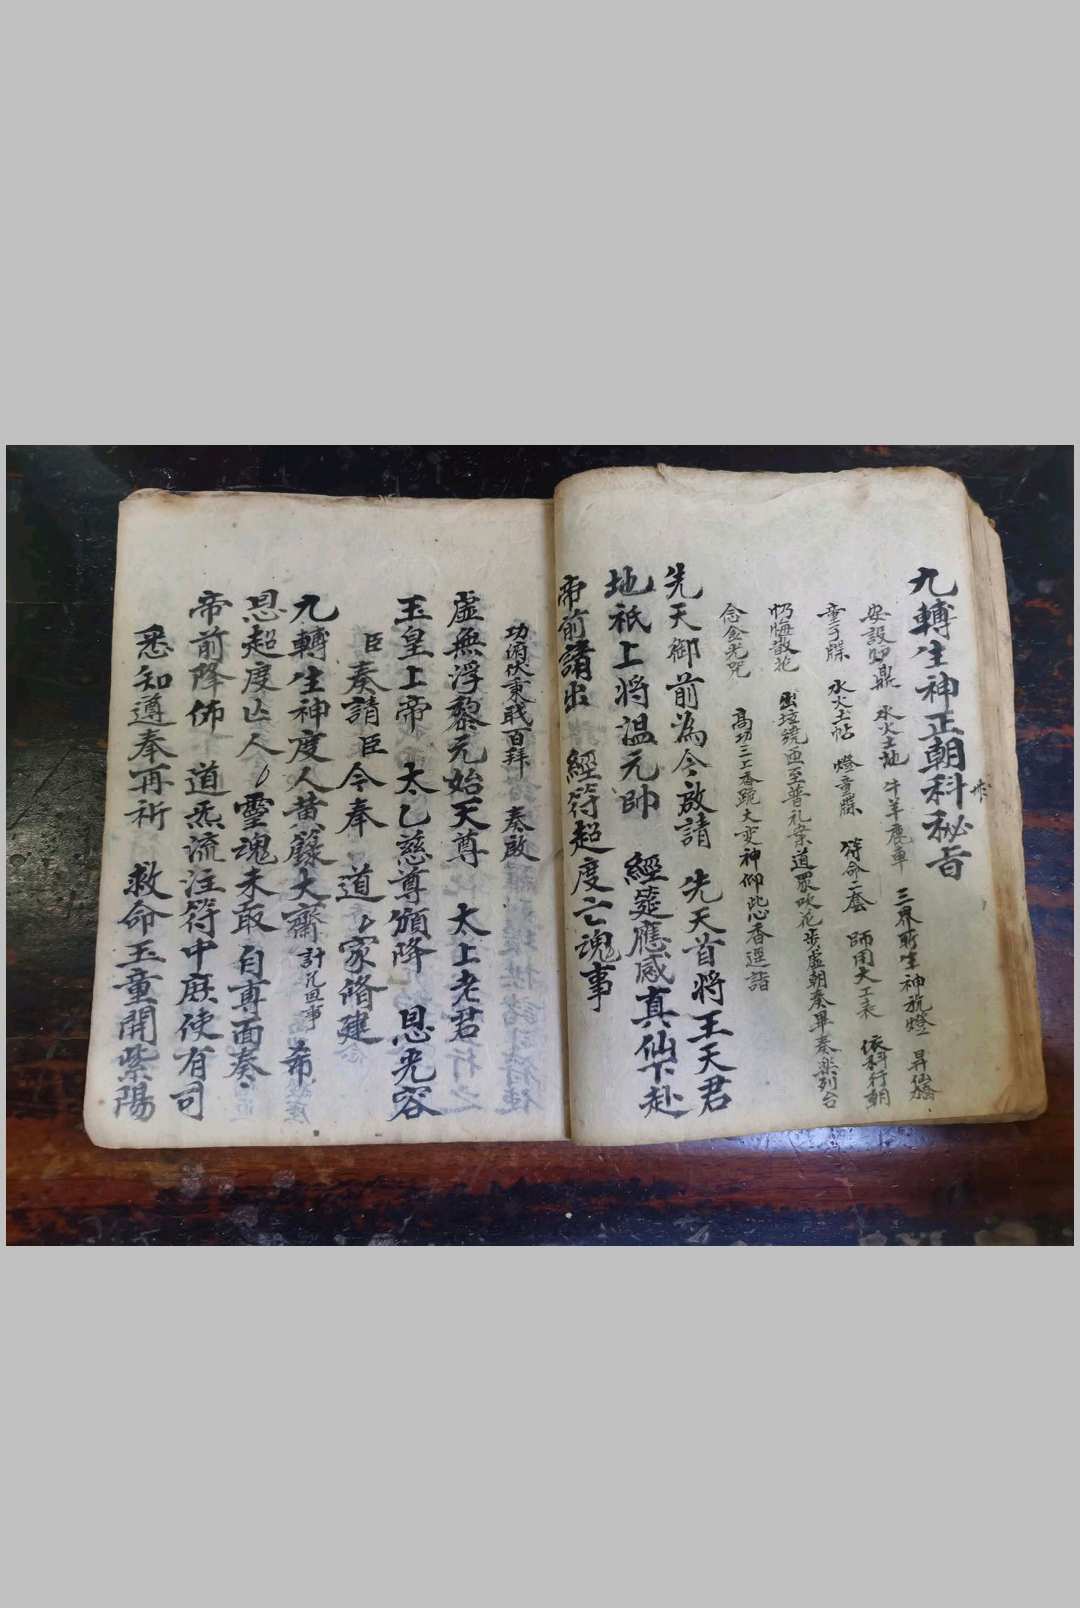 九轉生神正朝科秘旨
安設 鼎 水火土地 牛羊鹿車 三界 生神 燈 昇仙橋
童子牒 水火土帖 燈童牒 符命二套 師用大工表 依科行朝
散花 出壇繞 至普礼案道眾吹花步虛朝奏畢奏樂列台
念金光咒 高功三上香跪大变神仰啟 香 請
先天御前為今啟請 先天首將王天君
地祇上将温元帅 經筵應感真仙下赴
帝前請出 經符超度亡魂事
功 伏秉戩百拜 奏啟
虛無浮黎元始天尊 太上老君
玉皇上帝 太乙慈尊頒降 恩光容
臣奏請臣今奉 道家脩建
九轉生神度人黄籙大齋 事 希
恩超度亡人 靈魂未取自專面奏
帝前降佈 道炁流注符中庶使有司
悉知遵奉再祈 救命玉童開紫陽